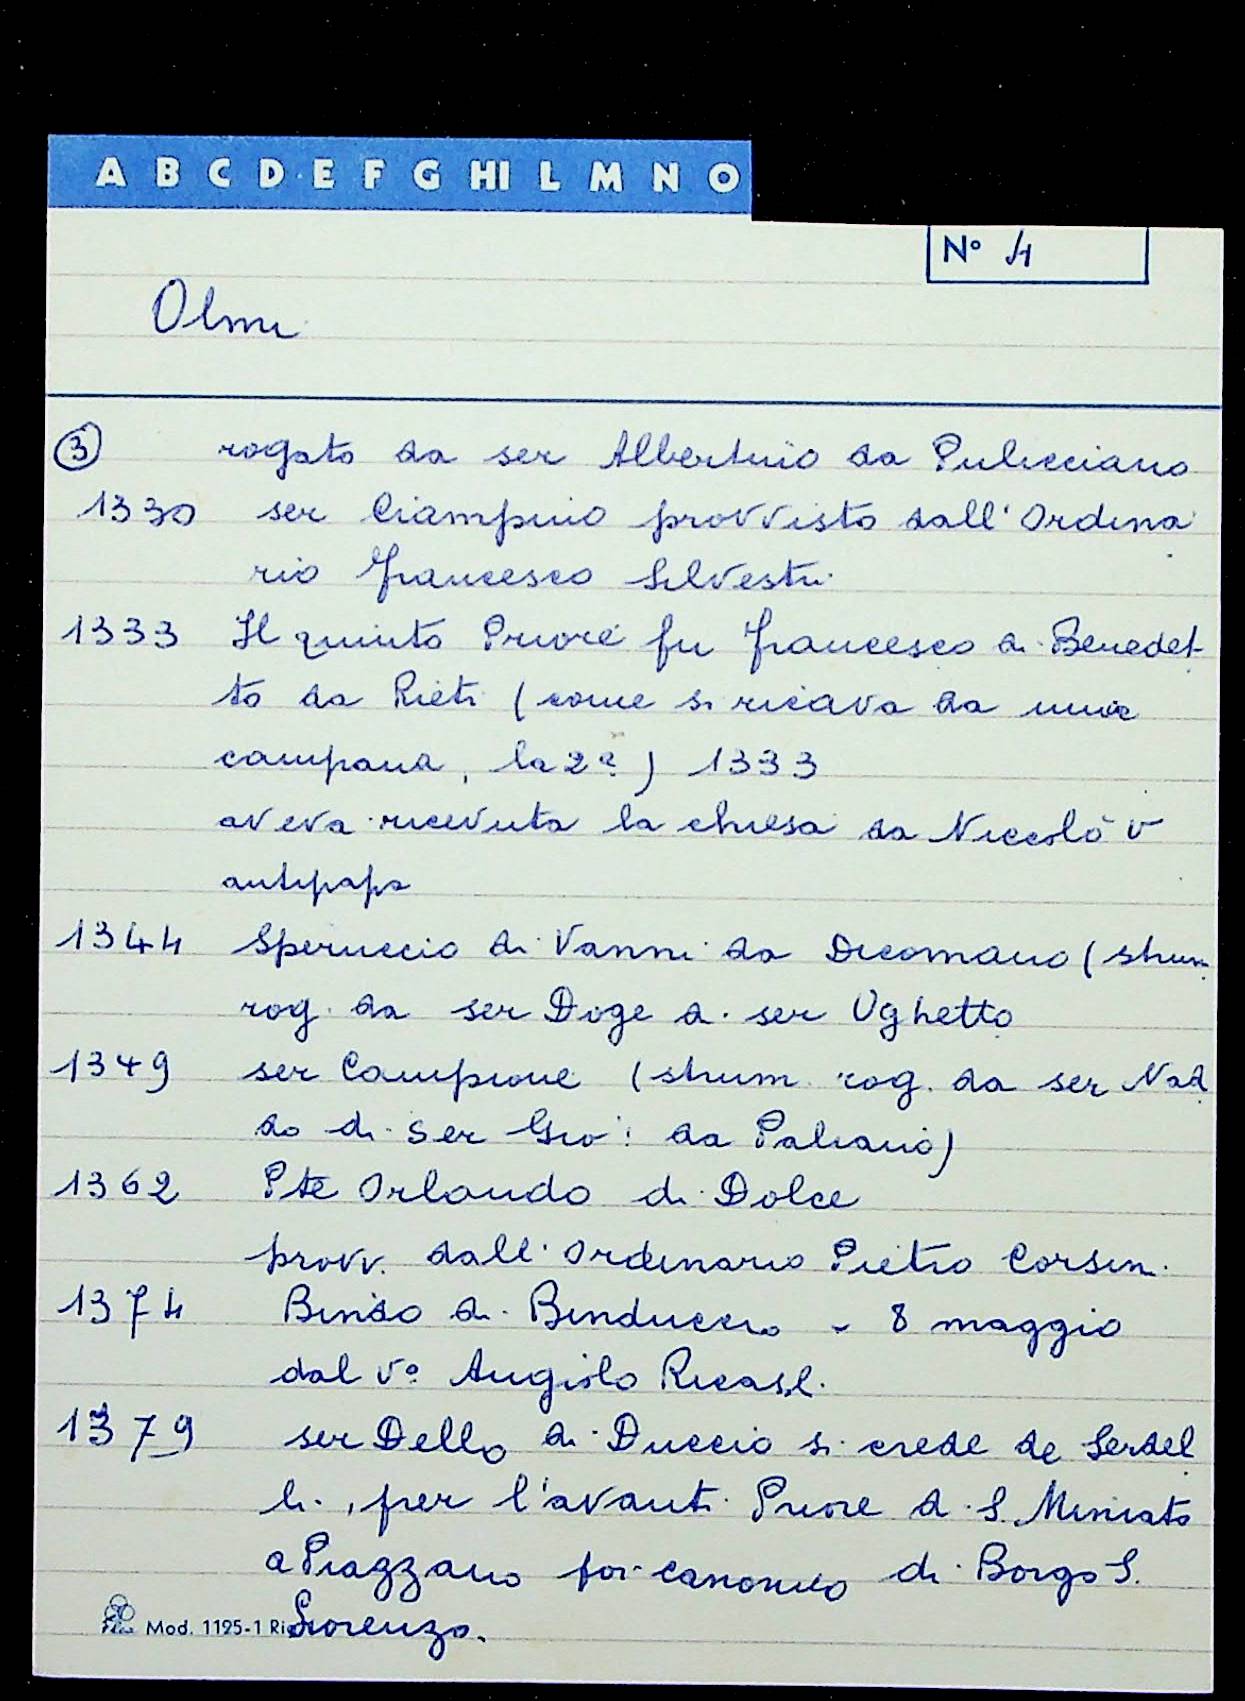 A B C D E F G HI L M N O
Nº 4
Olmi
3 rogato da ser Albertino da Pulicciano
1330 ser Ciampino provvisto dall'Ordina
rio Francesco Silvestri
1333 Il quinto Priore fu Francesco di Benedet
to da Rieti (come si ricava da una
campana, la 2ª) 1333
aveva ricevuta la chiesa da Niccolò V
antipapa
1344 Speruccio di Vanni da Dicomano (strum
rog. da ser Doge di ser Ughetto
1349 ser Campione (strum. rog. da ser Nad
do di ser Gio: da Paliano)
1362 Pte Orlando di Dolce
provv. dall'Ordinario Pietro Corsini
1374 Bindo di Binduccio - 8 maggio
dal Vº Angiolo Ricasl.
1379 ser Dello di Duccio si crede de Serdel
li, per l'avanti Priore di S. Miniato
a Piazzano poi canonico di Borgo S.
Lorenzo.
Mod. 1125-1 Ri